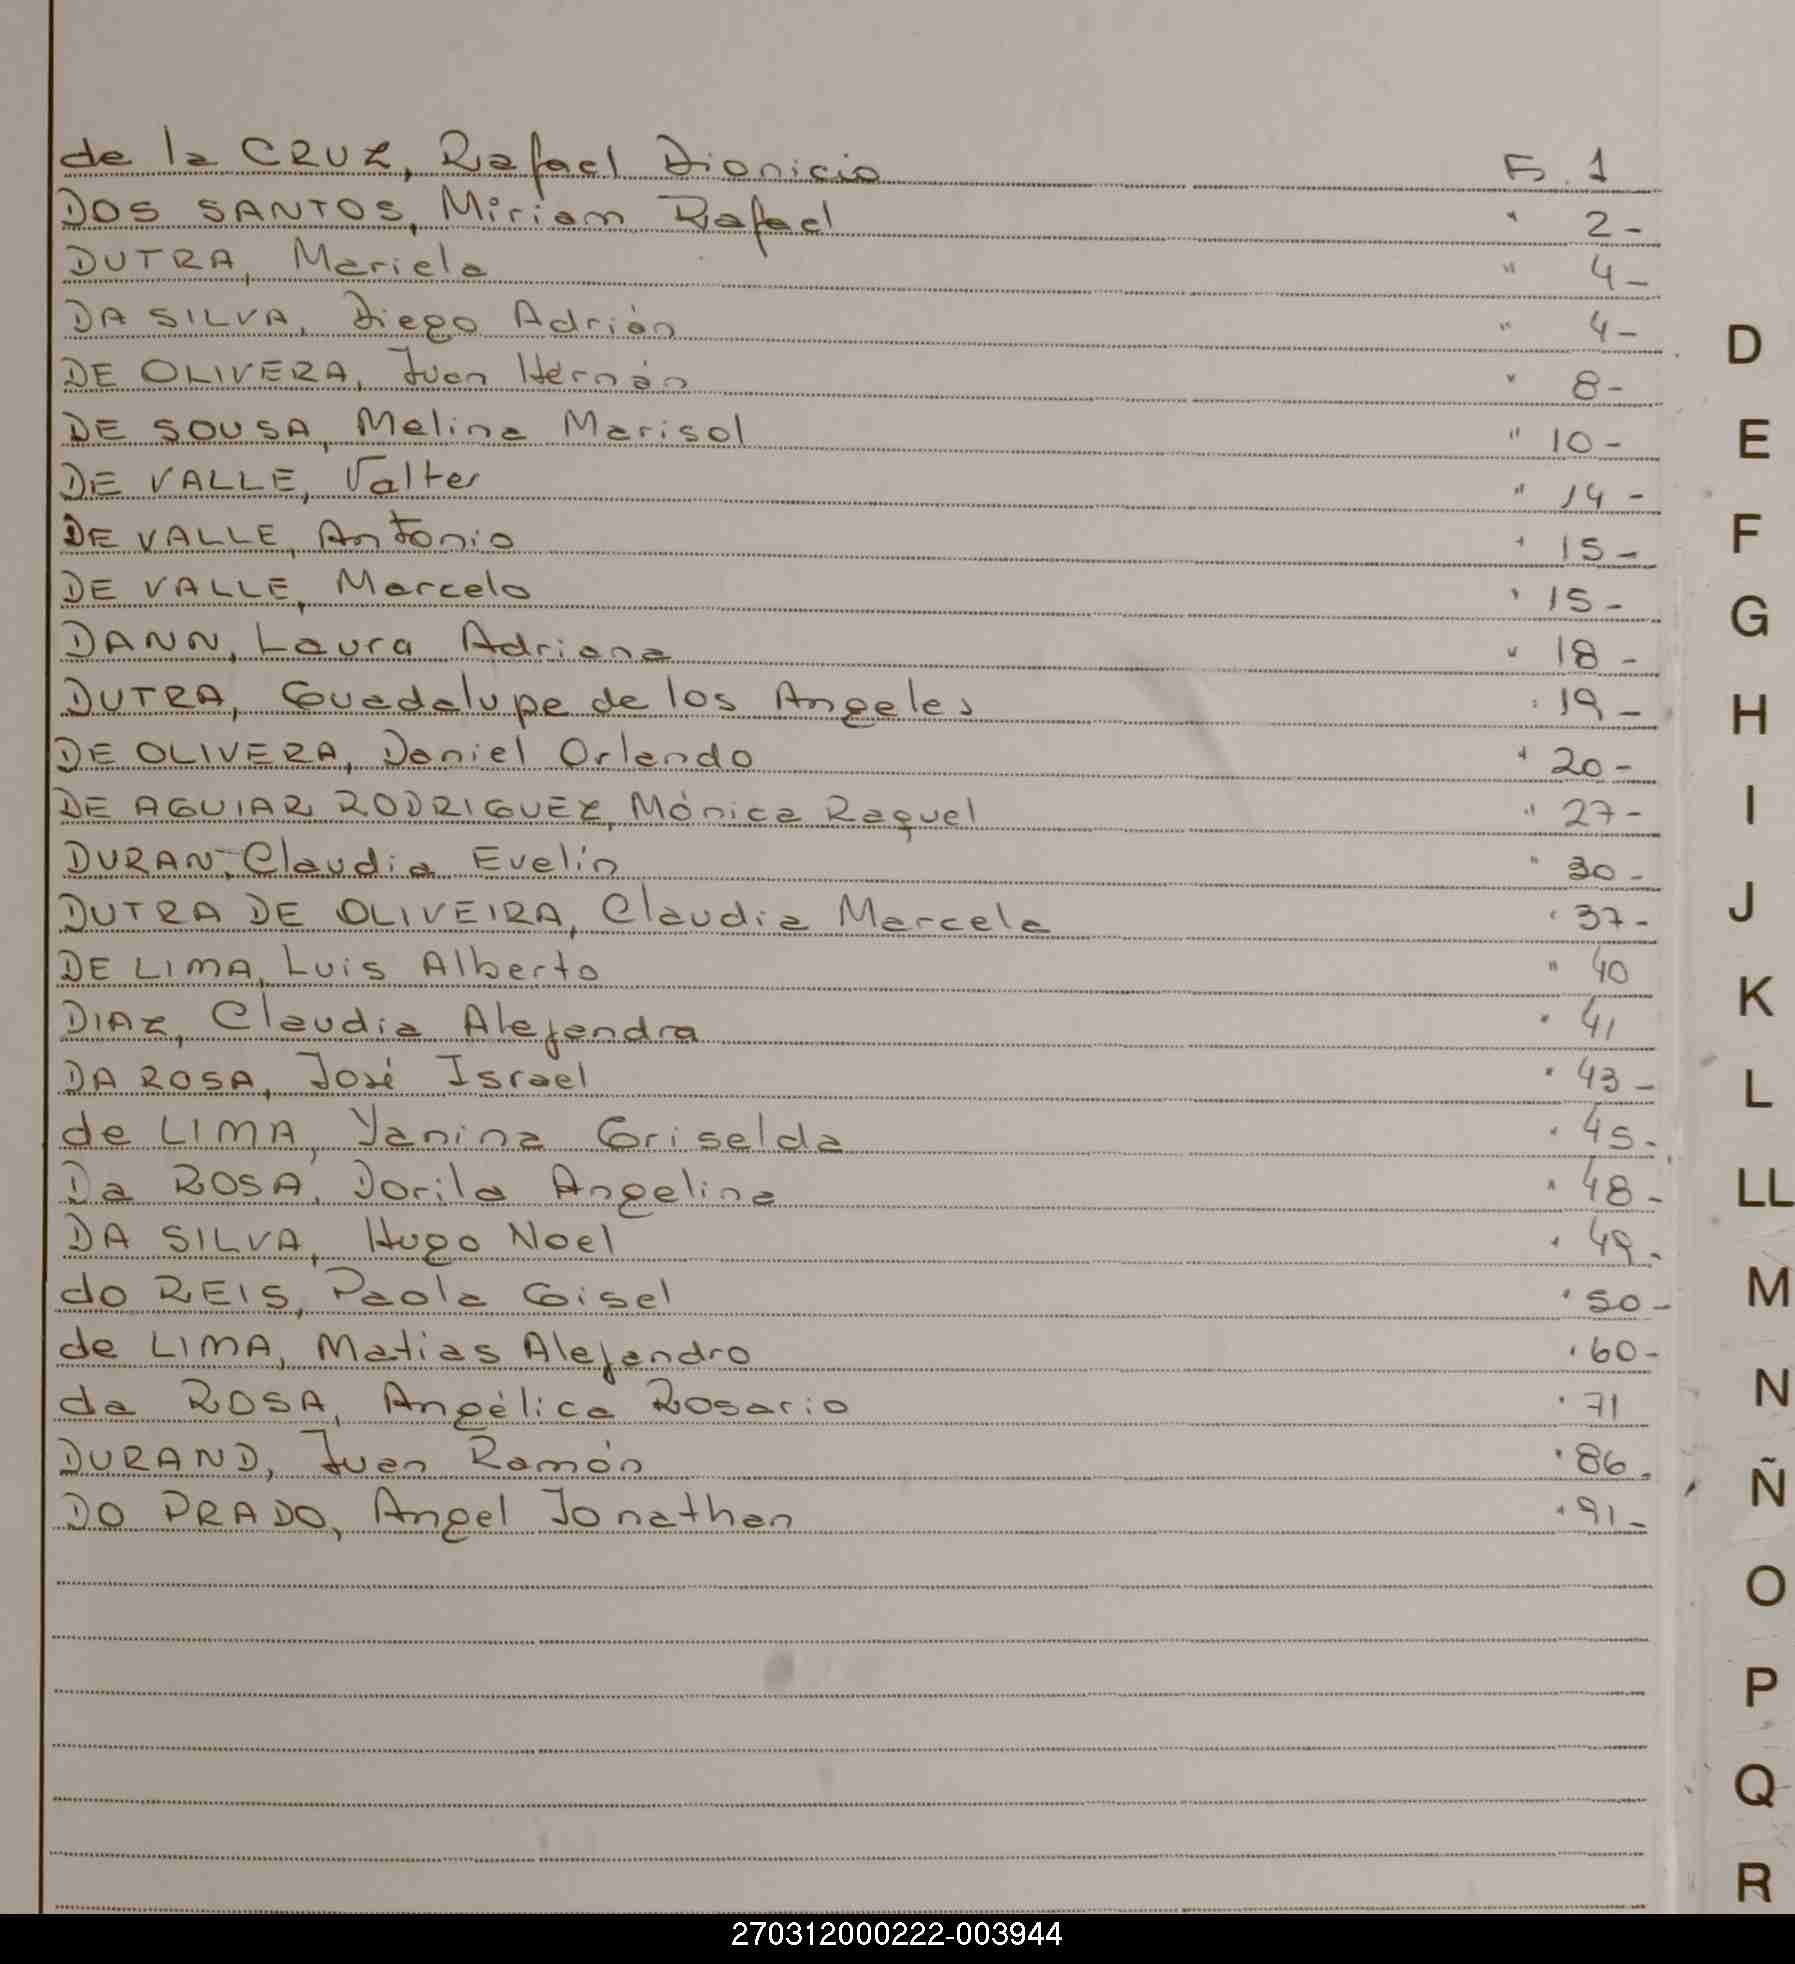 de la CRUZ, Rafael Dionicio F. 1
DOS SANTOS, Miriam Rafael " 2-
DUTRA, Mariela " 4-
DA SILVA, Diego Adrián " 4-
DE OLIVERA, Juan Hernán " 8-
DE SOUSA, Melina Marisol " 10-
DE VALLE, Valter " 14-
DE VALLE, Antonio " 15-
DE VALLE, Marcelo " 15-
DANN, Laura Adriana " 18-
DUTRA, Guadalupe de los Angeles " 19-
DE OLIVERA, Daniel Orlando " 20-
DE AGUIAR RODRIGUEZ, Mónica Raquel " 27-
DURAN, Claudia Evelín " 30-
DUTRA DE OLIVEIRA, Claudia Marcela " 37-
DE LIMA, Luis Alberto " 40
DIAZ, Claudia Alejandra " 41
DA ROSA, José Israel " 43-
de LIMA, Yanina Griselda " 45-
Da ROSA, Dorila Angelina " 48-
DA SILVA, Hugo Noel " 49-
do REIS, Paola Gisel " 50-
de LIMA, Matias Alejandro " 60-
da ROSA, Angélica Rosario " 71
DURAND, Juan Ramón " 86-
DO PRADO, Angel Jonathan " 91-
D
E
F
G
H
I
J
K
L
LL
M
N
Ñ
O
P
Q
R
270312000222-003944